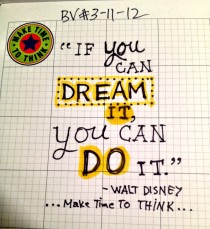 BV#3-11-12
MAKE TIME TO THINK
"IF you
CAN
DREAM
IT,
you CAN
DO IT."
- WALT DISNEY
...Make Time To THINK...